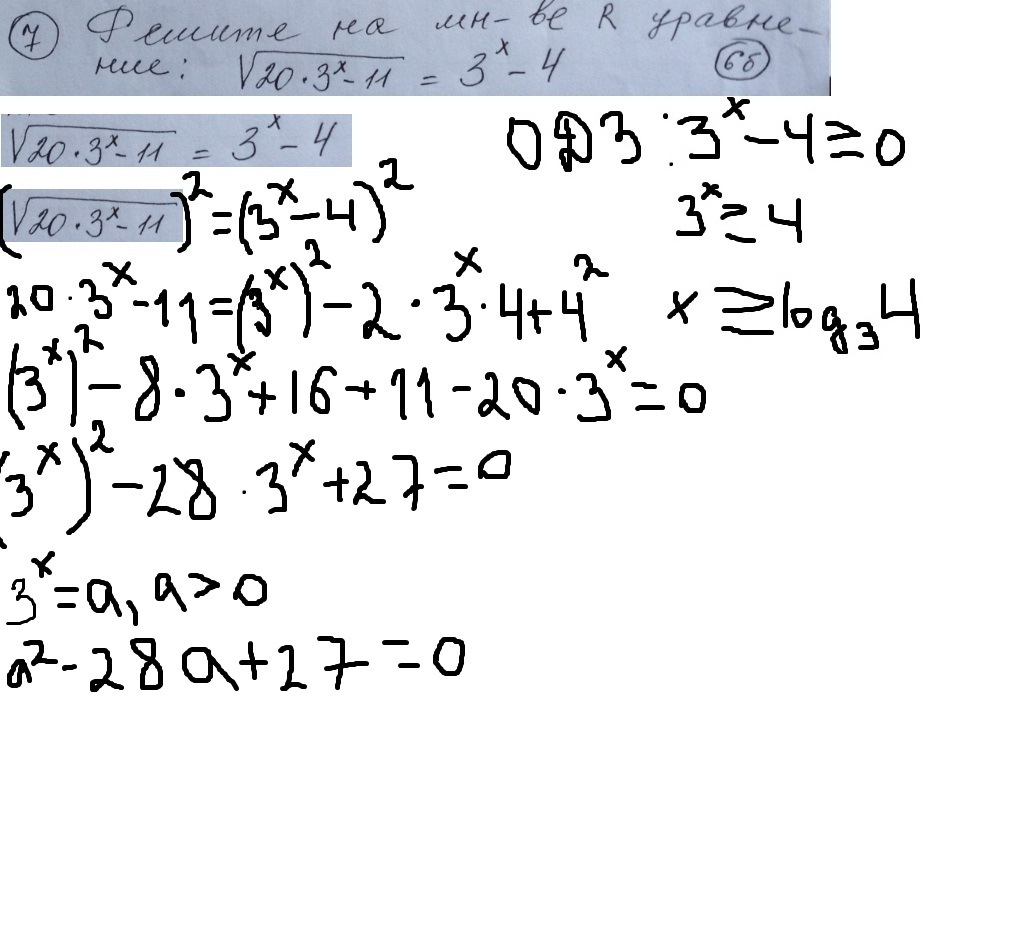 ⑦ Решите на мн-ве R уравне-
ние: √(20·3ˣ-11) = 3ˣ-4 (6б)
√(20·3ˣ-11) = 3ˣ-4
ОДЗ: 3ˣ-4≥0
(√(20·3ˣ-11))²=(3ˣ-4)²
3ˣ≥4
20·3ˣ-11=(3ˣ)²-2·3ˣ·4+4²
x≥log₃4
(3ˣ)²-8·3ˣ+16+11-20·3ˣ=0
(3ˣ)²-28·3ˣ+27=0
3ˣ=a, a>0
a²-28a+27=0